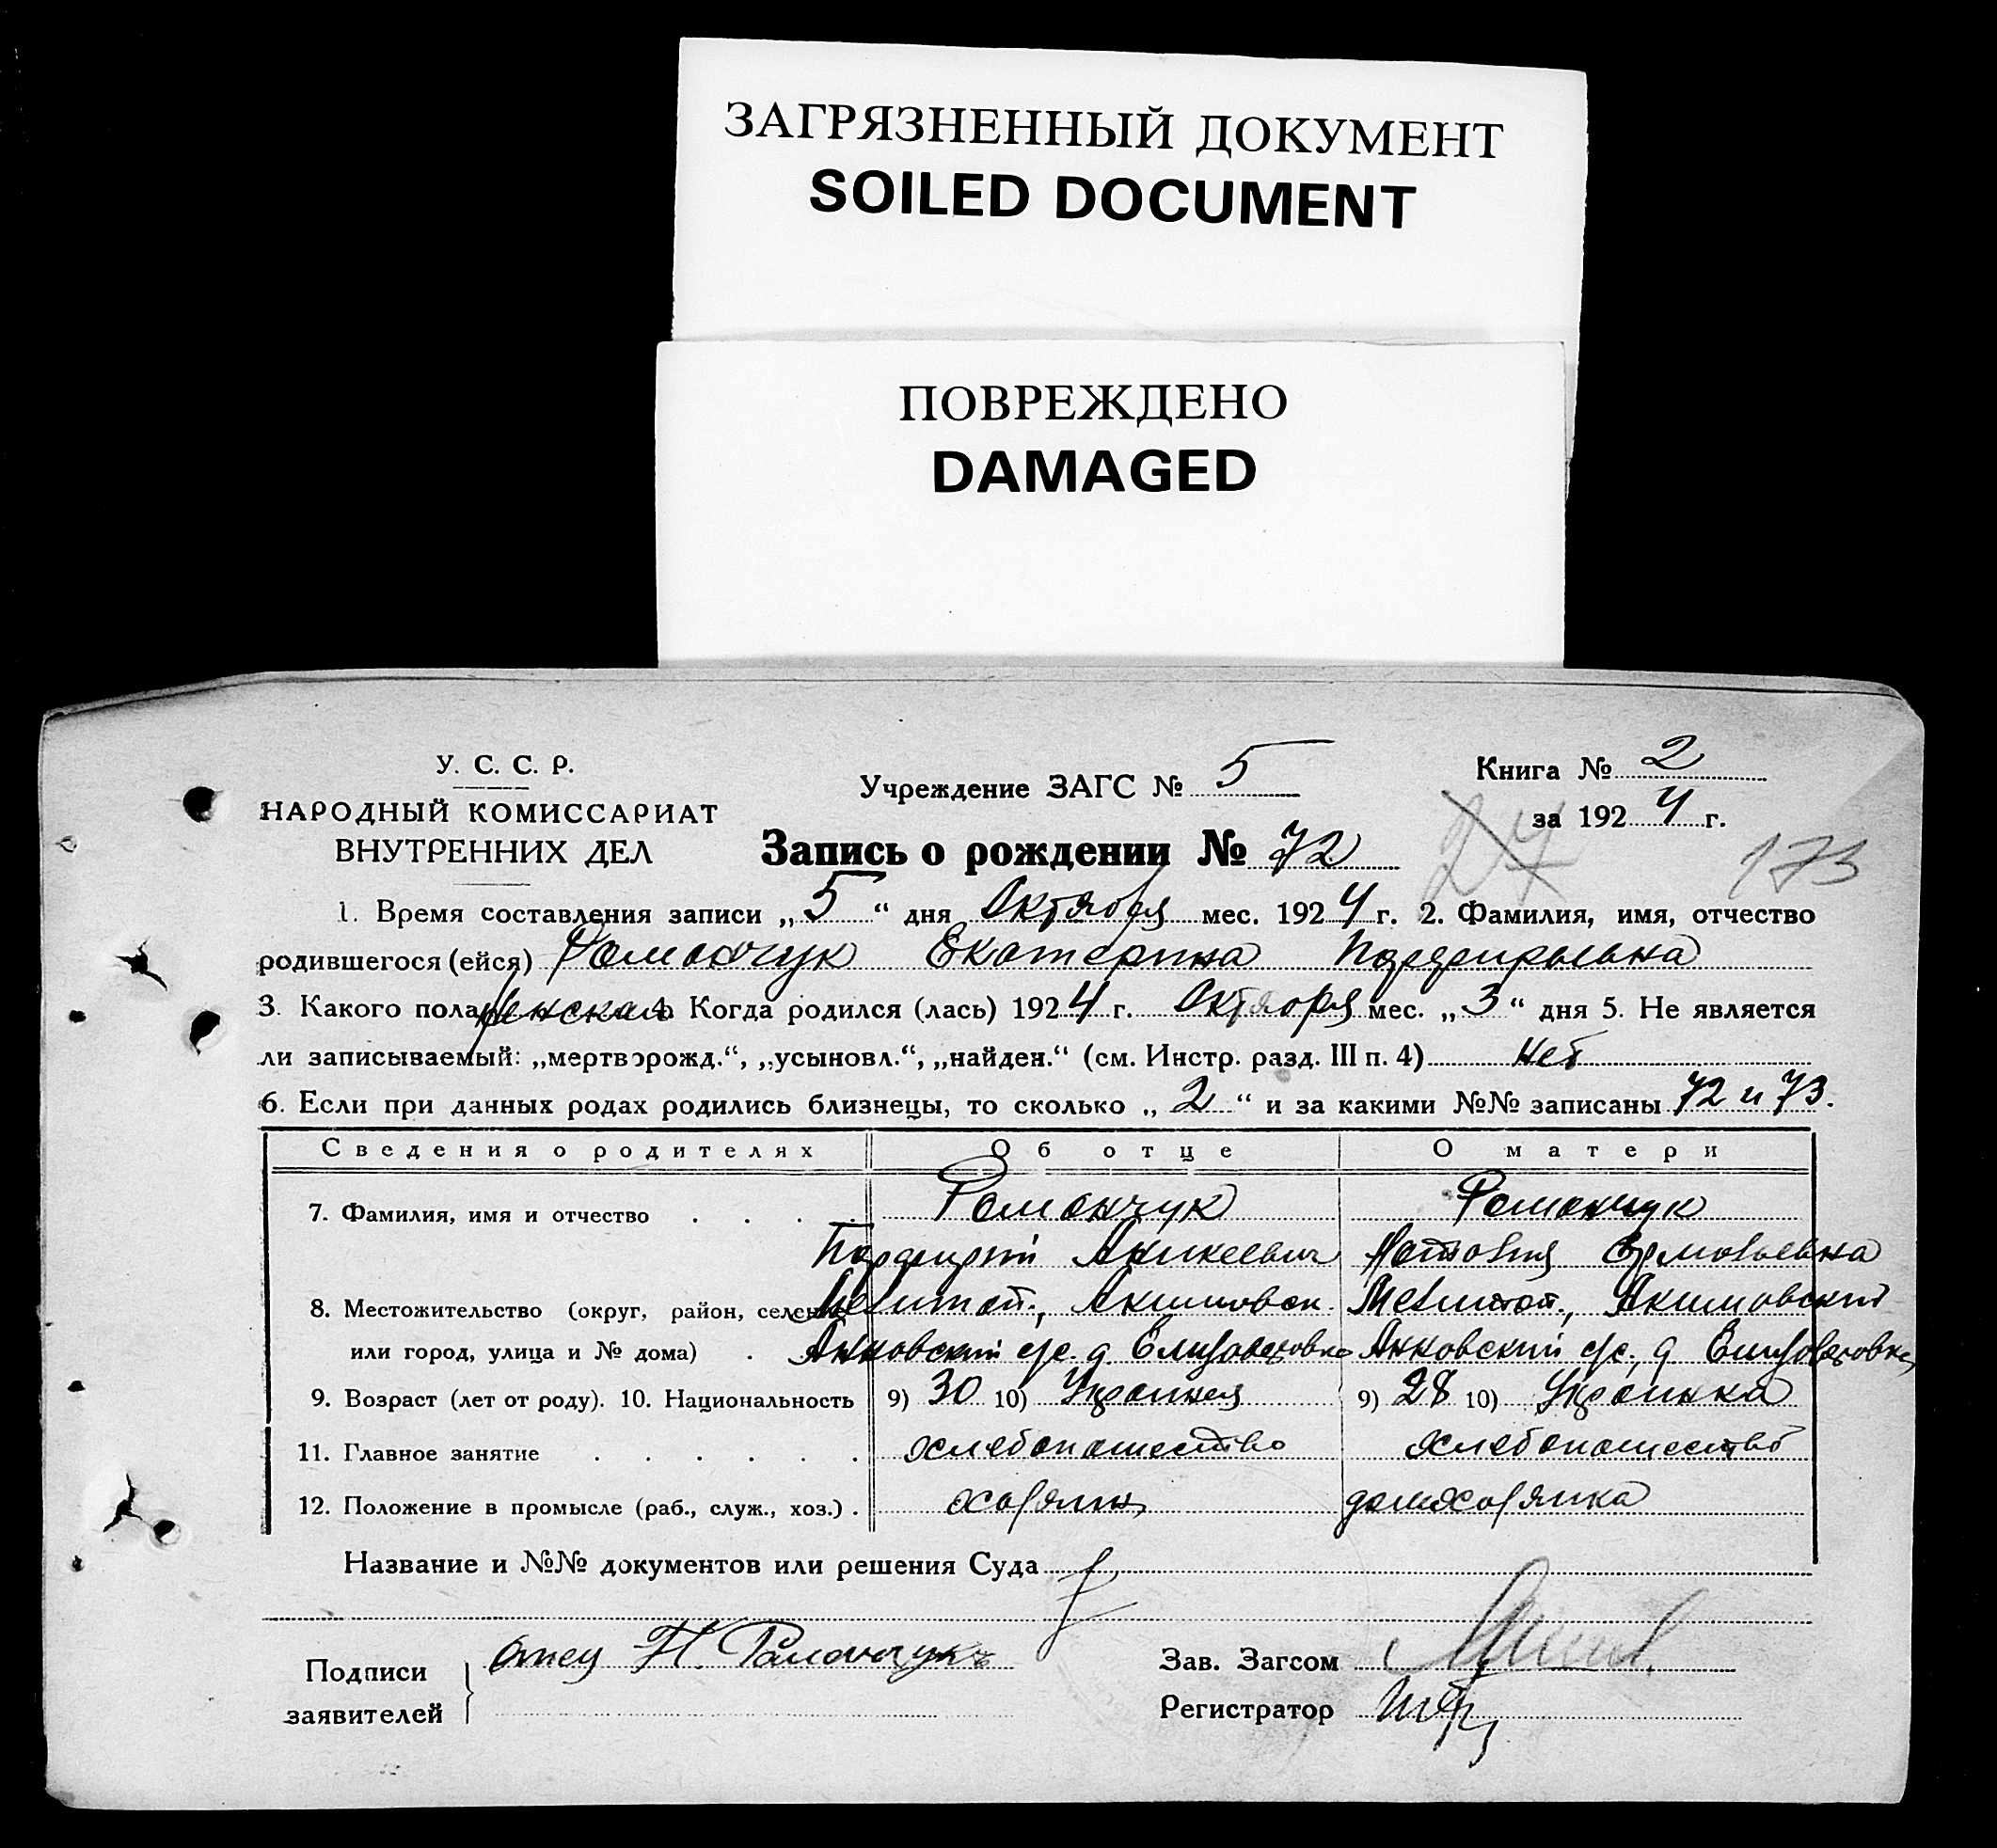 ЗАГРЯЗНЕННЫЙ ДОКУМЕНТ
SOILED DOCUMENT
ПОВРЕЖДЕНО
DAMAGED
У. С. С. Р.
НАРОДНЫЙ КОМИССАРИАТ
ВНУТРЕННИХ ДЕЛ
Учреждение ЗАГС № 5
Книга № 2
за 1924 г.
Запись о рождении № 72
27
173
1. Время составления записи „5“ дня Октября мес. 1924 г. 2. Фамилия, имя, отчество
родившегося (ейся) Романчук Екатерина Порфирьевна
3. Какого пола женская 4. Когда родился (лась) 1924 г. Октября мес. „3“ дня 5. Не является
ли записываемый: „мертворожд.“, „усыновл.“, „найден.“ (см. Инстр. разд. III п. 4) Нет
6. Если при данных родах родились близнецы, то сколько „2“ и за какими №№ записаны 72 и 73.
Сведения о родителях Об отце О матери
7. Фамилия, имя и отчество Романчук Романчук
Порфирий
8. Местожительство (округ, район, селение Мелитоп., Акимовск. Мелитоп., Акимовский
или город, улица и № дома) Анновский с/с. д. Елизаветовка Анновский с/с. д. Елизаветовка
9. Возраст (лет от роду). 10. Национальность 9) 30 10) Украинец 9) 28 10) Украинка
11. Главное занятие хлебопашество хлебопашество
12. Положение в промысле (раб., служ., хоз.) хозяин домохозяйка
Название и №№ документов или решения Суда
Подписи
заявителей
отец П. Романчукъ
Зав. Загсом
Регистратор